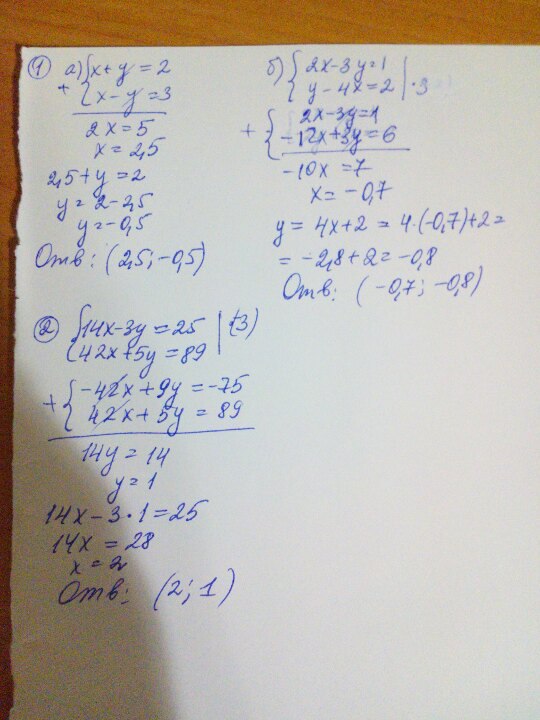 ① а) { x + y = 2
+ { x - y = 3
2x = 5
x = 2,5
2,5 + y = 2
y = 2 - 2,5
y = -0,5
Отв: (2,5; -0,5)
б) { 2x - 3y = 1
{ y - 4x = 2 | ·3
+ { 2x - 3y = 1
{ -12x + 3y = 6
-10x = 7
x = -0,7
y = 4x + 2 = 4·(-0,7) + 2 =
= -2,8 + 2 = -0,8
Отв: (-0,7; -0,8)
② { 14x - 3y = 25 | (-3)
{ 42x + 5y = 89
+ { -42x + 9y = -75
{ 42x + 5y = 89
14y = 14
y = 1
14x - 3·1 = 25
14x = 28
x = 2
Отв: (2; 1)